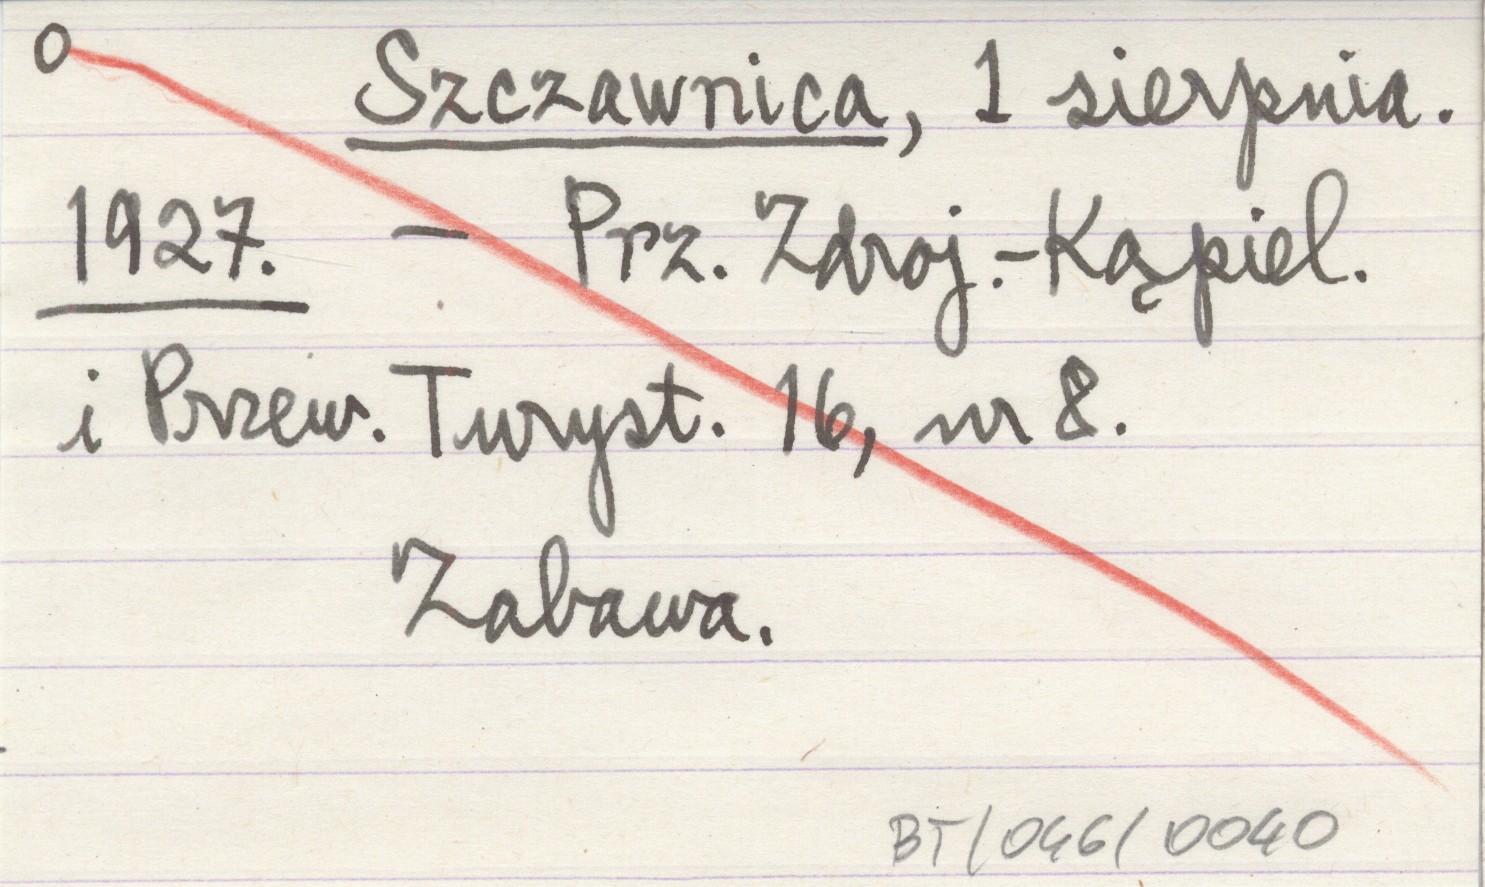 O
Szczawnica, 1 sierpnia.
1927. – Prz. Zdroj.-Kąpiel.
i Przew. Turyst. 16, nr 8.
Zabawa.
BT/046/0040